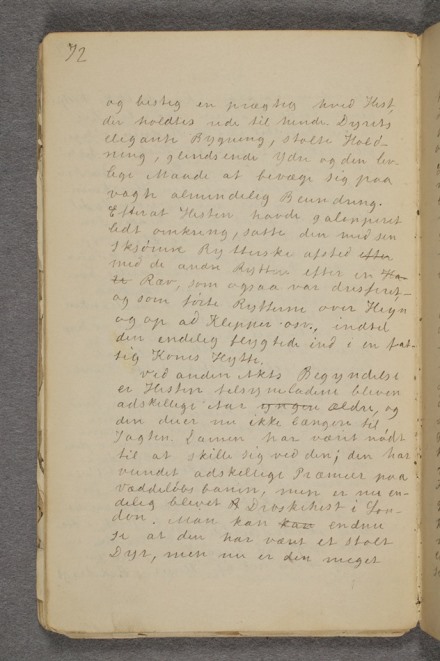 72
og besteg en prægtig hvid Hest,
der holdtes rede til hende. Dyrets
elegante Bygning, stolte Hold-
ning, glindsende Ydre og den lev-
lige Maade at bevæge sig paa
vagte almindelig Beundring.
Efterat Hesten havde galopperet
lidt omkring, satte den med sin
skjønne Rytterske afsted efter
med de andre Ryttere efter en
Ræv, som ogsaa var dresseret
og som førte Rytterne over Hegn
og op ad Klipper osv., indtil
den endelig flygtede ind i en fat-
tig Kones Hytte.
Ved anden Akts Begyndelse
er Hesten tilsyneladende bleven
adskillige Aar yngre ældre, og
den duer nu ikke længere til
Jagten. Damen har været nødt
til at skille sig ved den; den har
vundet adskillige Præmier paa
Væddeløbsbanen, men er nu en-
delig blevet Droskehest i Lon-
don. Man kan kan endnu
se at den har været et stolt
Dyr, men nu er den meget